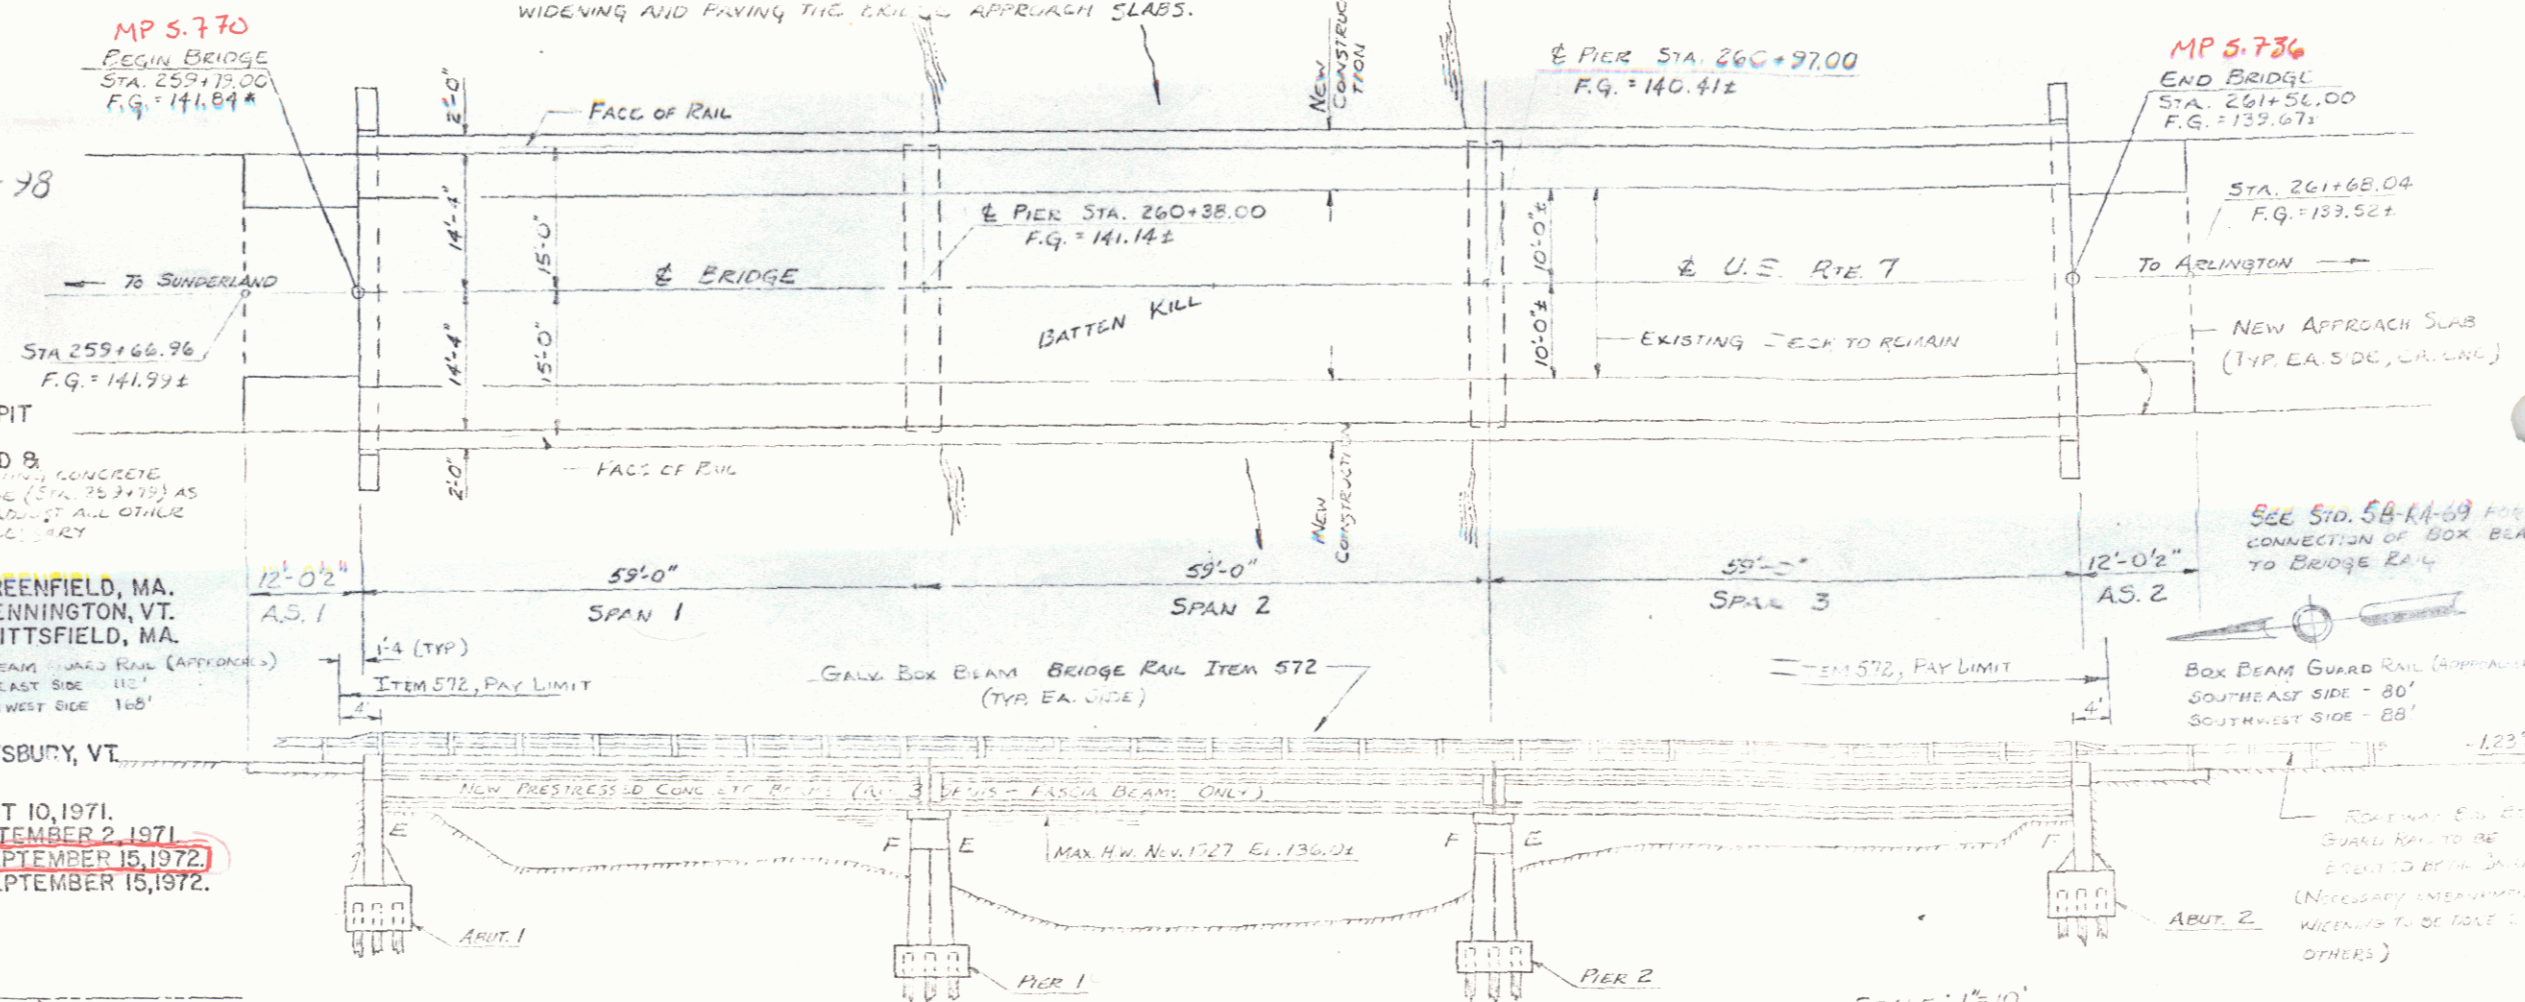 WIDENING AND PAVING THE BRIDGE APPROACH SLABS.
MP 5.770
BEGIN BRIDGE
STA. 259+79.00
F.G. = 141.84*
2'-0"
FACE OF RAIL
NEW
CONSTRUC
TION
℄ PIER STA. 260+97.00
F.G. = 140.41±
MP 5.736
END BRIDGE
STA. 261+56.00
F.G. = 139.67±
98
14'-4"
15'-0"
℄ PIER STA. 260+38.00
F.G. = 141.14±
10'-0"±
STA. 261+68.04
F.G. = 139.52±
TO SUNDERLAND
℄ BRIDGE
℄ U.S. RTE. 7
TO ARLINGTON
BATTEN KILL
STA 259+66.96
F.G. = 141.99±
14'-4"
15'-0"
10'-0"±
EXISTING DECK TO REMAIN
NEW APPROACH SLAB
(TYP. EA. SIDE, EA. END)
PIT
D &
CONCRETE
(STA. 259+79) AS
ADJUST ALL OTHER
2'-0"
FACE OF RAIL
NEW
CONSTRUCTION
SEE STD. SB-RA-69 FOR
CONNECTION OF BOX BEA
TO BRIDGE RAIL
REENFIELD, MA.
ENNINGTON, VT.
ITTSFIELD, MA.
12'-0½"
A.S. 1
59'-0"
SPAN 1
59'-0"
SPAN 2
59'-0"
SPAN 3
12'-0½"
A.S. 2
EAM GUARD RAIL (APPROACHES)
EAST SIDE 112'
WEST SIDE 168'
1'-4 (TYP)
ITEM 572, PAY LIMIT
4'
GALV. BOX BEAM BRIDGE RAIL ITEM 572
(TYP. EA. SIDE)
ITEM 572, PAY LIMIT
4'
BOX BEAM GUARD RAIL (APPROACH
SOUTHEAST SIDE - 80'
SOUTHWEST SIDE - 88'
SBURY, VT.
-1.23
NEW PRESTRESSED CONCRETE BEAMS (ALL 3 SPANS - FASCIA BEAMS ONLY)
T 10, 1971.
TEMBER 2, 1971.
PTEMBER 15, 1972.
EPTEMBER 15, 1972.
E
F
E
MAX. H.W. NOV. 1927 EL. 136.0±
F
E
F
ROADWAY BOX
GUARD RAIL TO BE
(NECESSARY EMBANKMENT
WIDENING TO BE DONE
OTHERS)
ABUT. 1
PIER 1
PIER 2
ABUT. 2
SCALE: 1"=10'